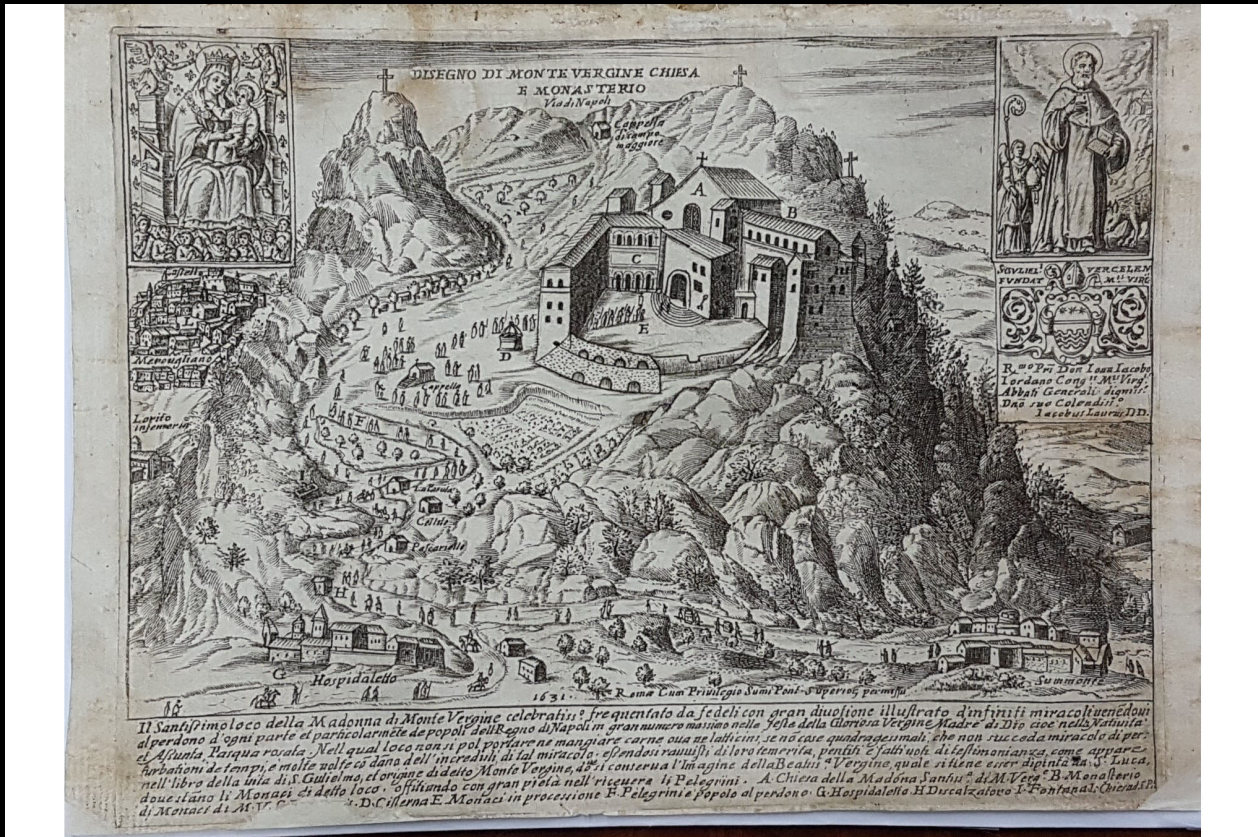 DISEGNO DI MONTE VERGINE CHIESA
E MONASTERIO
Via di Napoli
Cappella
di campo
maggiore
A
B
C
E
D
Castello
Merovgliano
Lorito
infermeria
Cappella
F
Pascariello
H
G
Hospidaletto
Summonte
S. GVLIEL.
VERCELEN
FVNDAT
M.tis VIRG
R.mo Pri Don Ioan Iacobo
Iordano Cong.nis M.tis Virg.s
Abbati Generali digniss.o
Dno suo Colendiss.o
Iacobus Laurus DD.
1631. Romæ Cum Privilegio Sumi Pont. Superior, permissu
Il Santissimo loco della Madonna di Monte Vergine celebratiss.o frequentato da fedeli con gran divotione illustrato d'infiniti miracoli venedovi
al perdono d'ogni parte et particolarmēte de popoli dell' Regno di Napoli in gran numero massimo nelle feste della Gloriosa Vergine Madre di Dio cioè nella Natiuità
et Assunta, Pasqua rosata. Nell qual loco non si pol portare ne mangiare carne oua ne latticini se nō cose quadragesimali, che non succeda miracolo di per:
turbationi de tempi, e molte volte cō dano dell' increduli, di tal miracolo; essendosi rauuisti, di loro temerita, pentiti e fatti voti di testimonianza, come appare
nell' libro della vita di S. Gulielmo, et origine di detto Monte Vergine, doue si conserva l'Imagine della Beatiss.a Vergine, quale si tiene esser dipinta da S. Luca,
doue stano li Monaci di detto loco, offitiando con gran pietà nell' riceuere li Pelegrini. A. Chiesa della Madōna Santiss.a di M. Verg.e B. Monasterio
di Monaci di M. V. D. Cisterna E. Monaci in processione F. Pelegrini e popolo al perdono. G. Hospidaletto. H Discalzatoro I. Fontana L. Chiesa d. S. P.